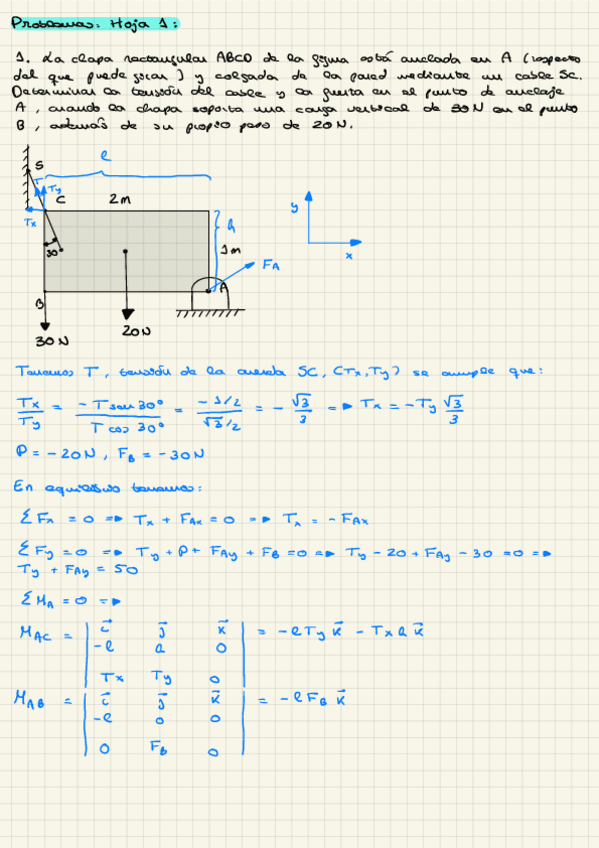 Problemas: Hoja 1:
1. La chapa rectangular ABCD de la figura está anclada en A (respecto
del que puede girar) y colgada de la pared mediante un cable SC.
Determinar la tensión del cable y la fuerza en el punto de anclaje
A, cuando la chapa soporta una carga vertical de 30N en el punto
B, además de su propio peso de 20N.
S
l
T
Ty
C
2m
Tx
30°
h
1m
y
x
FA
A
B
30N
20N
Tenemos T, tensión de la cuerda SC, (Tx, Ty) se cumple que:
Tx/Ty = -T sen 30°/T cos 30° = -1/2/√3/2 = -√3/3 => Tx = -Ty √3/3
P = -20N, FB = -30N
En equilibrio tenemos:
ΣFx = 0 => Tx + FAx = 0 => Tx = -FAx
ΣFy = 0 => Ty + P + FAy + FB = 0 => Ty - 20 + FAy - 30 = 0 =>
Ty + FAy = 50
ΣMA = 0 =>
MAC = | i j k | = -l Ty k - Tx a k
-l a 0
Tx Ty 0
MAB = | i j k | = -l FB k
-l 0 0
0 FB 0